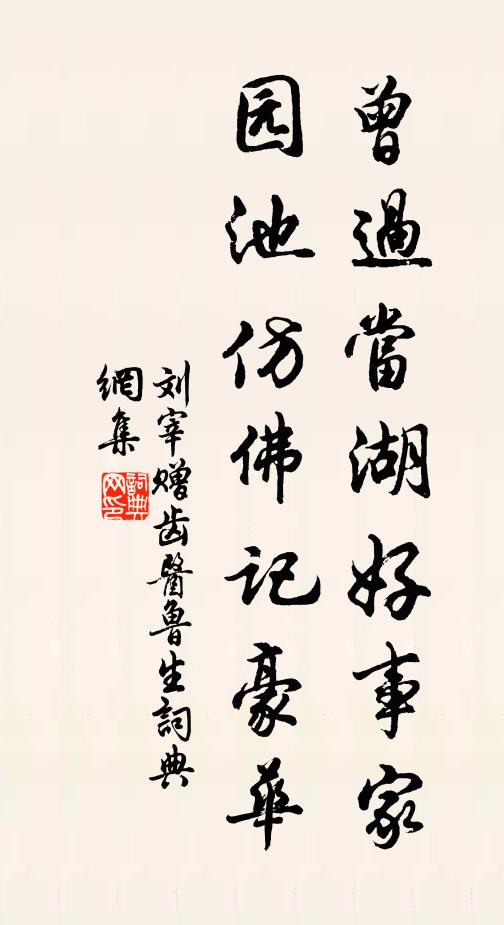 曾過當湖好事家
园池仿佛记豪華
刘宰赠齿醫魯生詞典
網集
詞典
网印